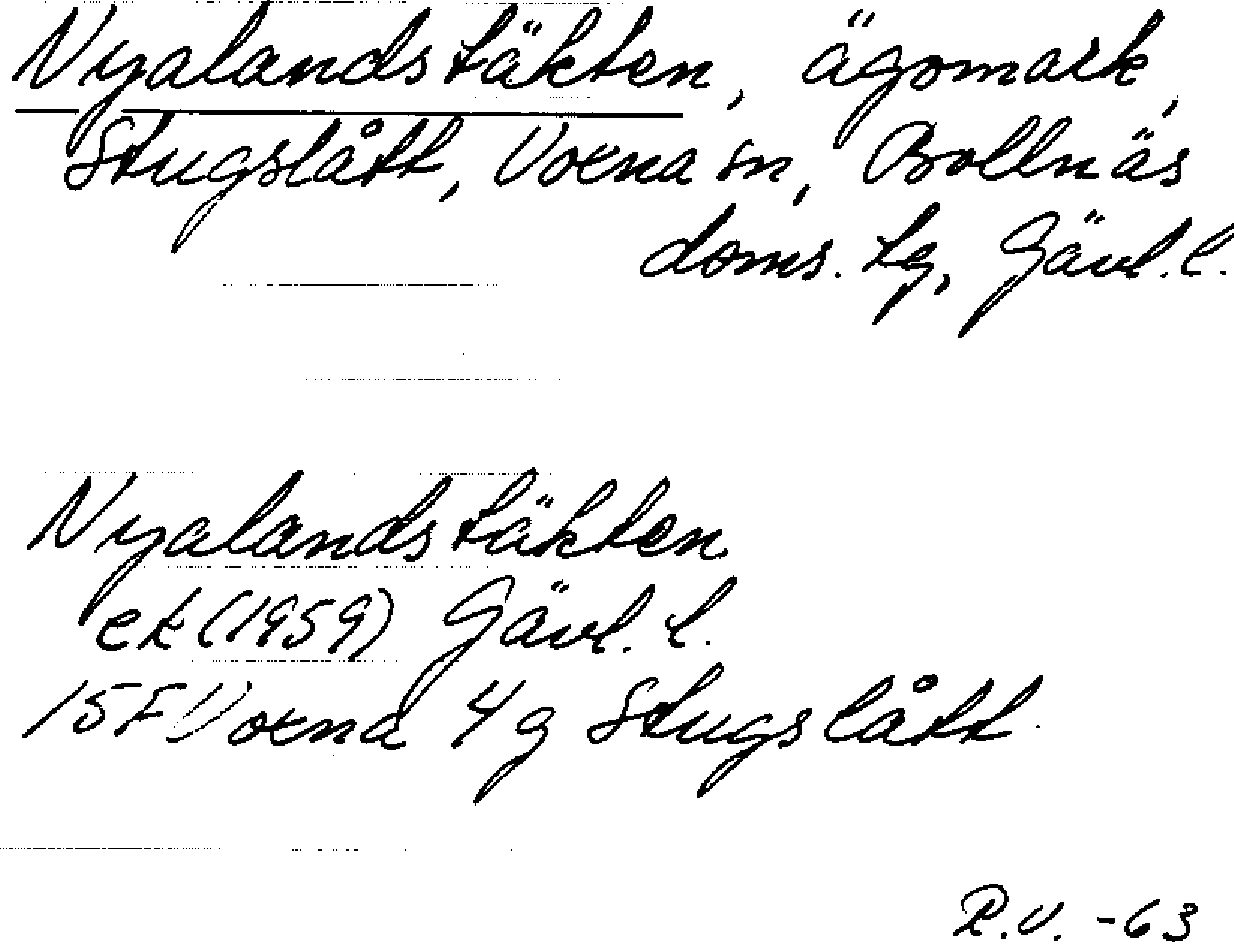 Nyalandstäkten, ägomark,
Stugslått, Voxna sn, Bollnäs
doms. tg, Gävl. l.
Nyalandstäkten
ek (1959) Gävl. l.
15F Voxna 4g Stugslått
R.V. -63